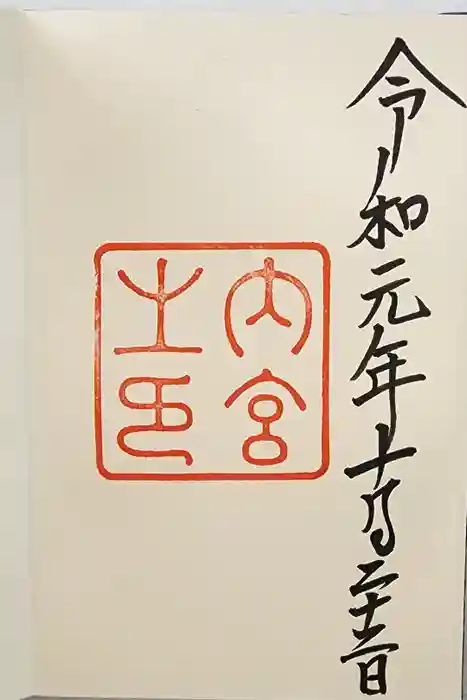 令和元年十月二十日
内宮
之印